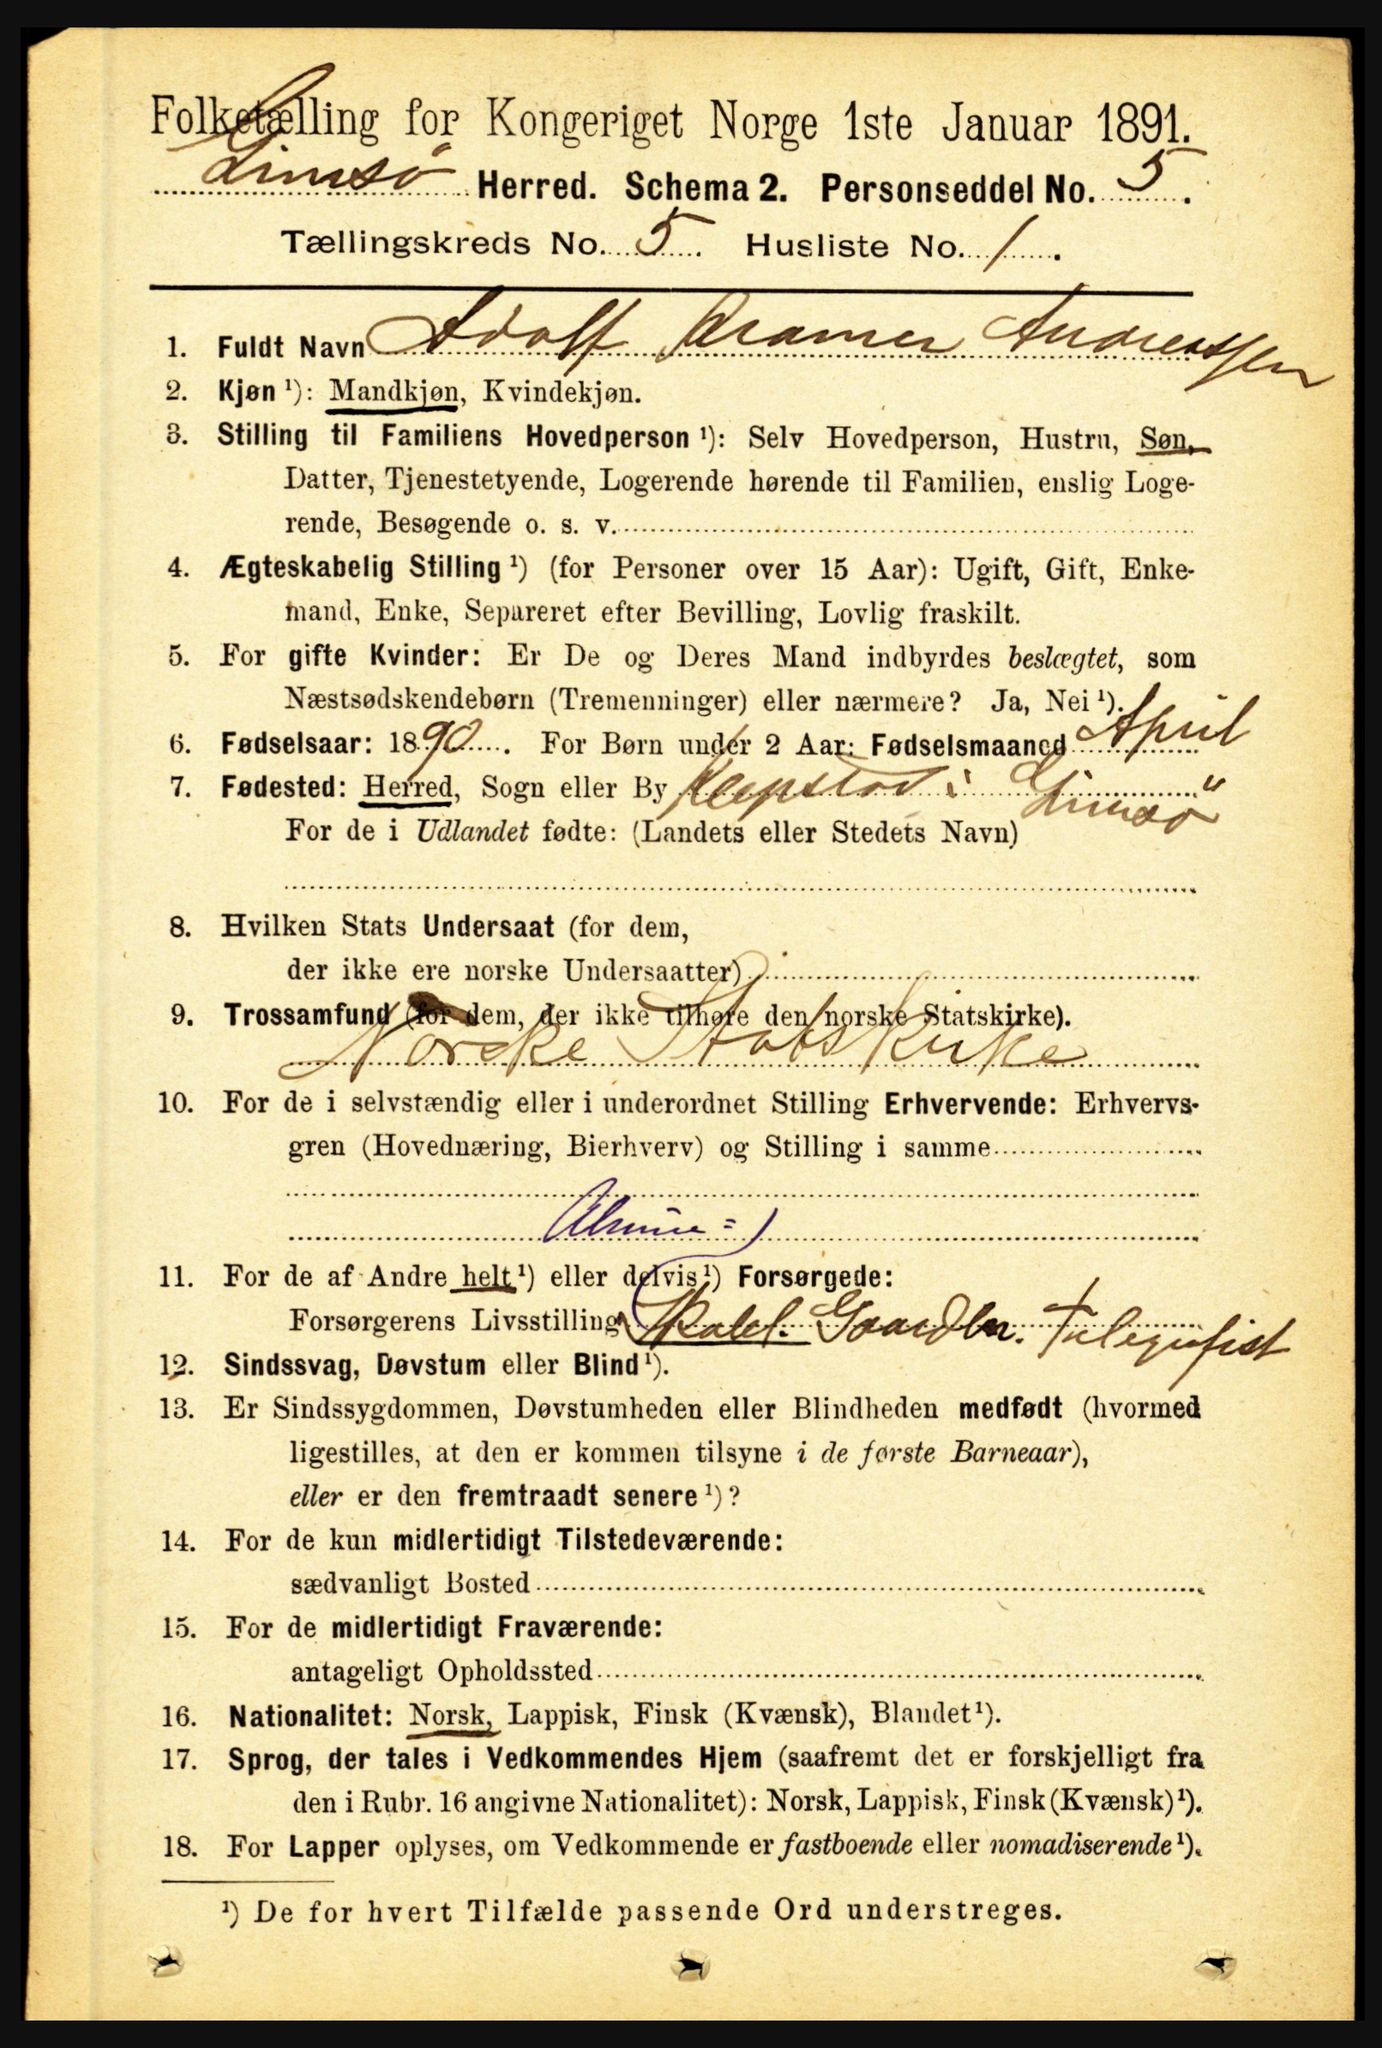 Folketælling for Kongeriget Norge 1ste Januar 1891.
Gimsø Herred. Schema 2. Personseddel No. 5.
Tællingskreds No. 5. Husliste No. 1.
1. Fuldt Navn Adolf Kramer Andreassen
2. Kjøn ¹): Mandkjøn, Kvindekjøn.
3. Stilling til Familiens Hovedperson ¹): Selv Hovedperson, Hustru, Søn,
Datter, Tjenestetyende, Logerende hørende til Familien, enslig Loge-
rende, Besøgende o. s. v.
4. Ægteskabelig Stilling ¹) (for Personer over 15 Aar): Ugift, Gift, Enke-
mand, Enke, Separeret efter Bevilling, Lovlig fraskilt.
5. For gifte Kvinder: Er De og Deres Mand indbyrdes beslægtet, som
Næstsødskendebørn (Tremenninger) eller nærmere? Ja, Nei ¹).
6. Fødselsaar: 1890. For Børn under 2 Aar: Fødselsmaaned April
7. Fødested: Herred, Sogn eller By Klepstad i Gimsø
For de i Udlandet fødte: (Landets eller Stedets Navn)
8. Hvilken Stats Undersaat (for dem,
der ikke ere norske Undersaatter)
9. Trossamfund (for dem, der ikke tilhøre den norske Statskirke).
Norske Statskirke
10. For de i selvstændig eller i underordnet Stilling Erhvervende: Erhvervs-
gren (Hovednæring, Bierhverv) og Stilling i samme
11. For de af Andre helt ¹) eller delvis ¹) Forsørgede:
Forsørgerens Livsstilling Telegrafist
12. Sindssvag, Døvstum eller Blind ¹).
13. Er Sindssygdommen, Døvstumheden eller Blindheden medfødt (hvormed
ligestilles, at den er kommen tilsyne i de første Barneaar),
eller er den fremtraadt senere ¹)?
14. For de kun midlertidigt Tilstedeværende:
sædvanligt Bosted
15. For de midlertidigt Fraværende:
antageligt Opholdssted
16. Nationalitet: Norsk, Lappisk, Finsk (Kvænsk), Blandet ¹).
17. Sprog, der tales i Vedkommendes Hjem (saafremt det er forskjelligt fra
den i Rubr. 16 angivne Nationalitet): Norsk, Lappisk, Finsk (Kvænsk) ¹).
18. For Lapper oplyses, om Vedkommende er fastboende eller nomadiserende ¹).
¹) De for hvert Tilfælde passende Ord understreges.